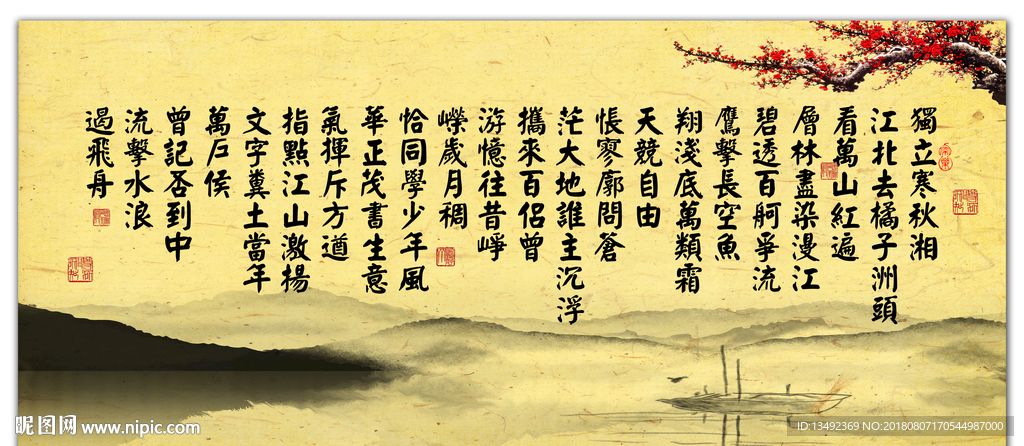 獨立寒秋湘
江北去橘子洲頭
看萬山紅遍
層林盡染漫江
碧透百舸爭流
鷹擊長空魚
翔淺底萬類霜
天競自由
悵寥廓問蒼
茫大地誰主沉浮
攜來百侶曾
游憶往昔崢
嶸歲月稠
恰同學少年風
華正茂書生意
氣揮斥方遒
指點江山激揚
文字糞土當年
萬戶侯
曾記否到中
流擊水浪
遏飛舟
昵图网 www.nipic.com
ID:13492369 NO:20180807170544987000